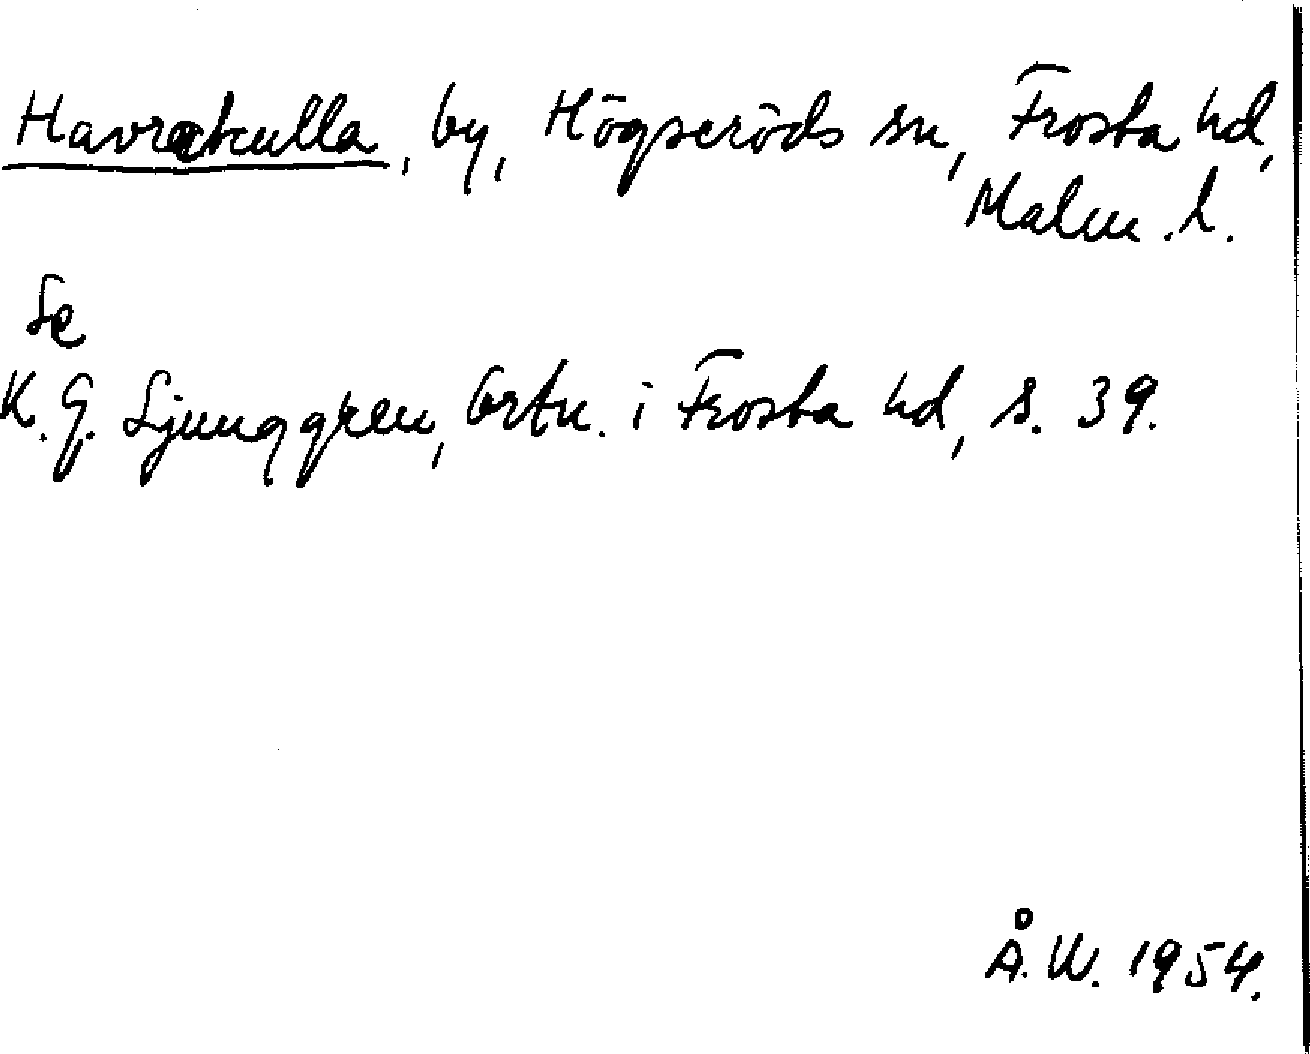 Havrekulla, by, Högseröds sn, Frosta hd,
Malm. l.
Se
K. G. Ljunggren, Ortn. i Frosta hd, s. 39.
Å. W. 1954.